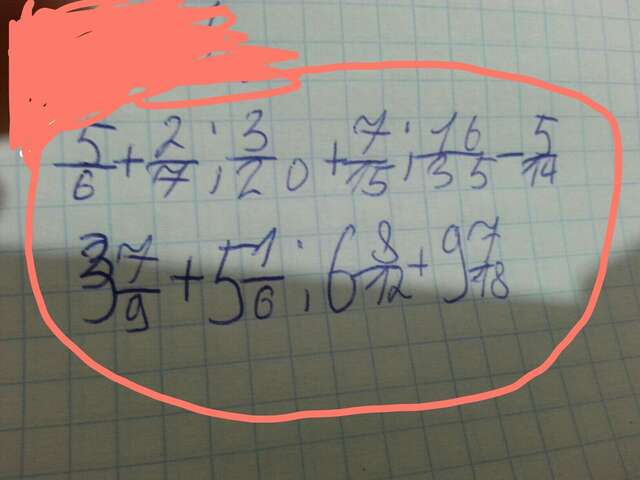 5/6 + 2/7 ; 3/20 + 7/15 ; 16/35 - 5/14
3 7/9 + 5 1/6 ; 6 8/12 + 9 7/18